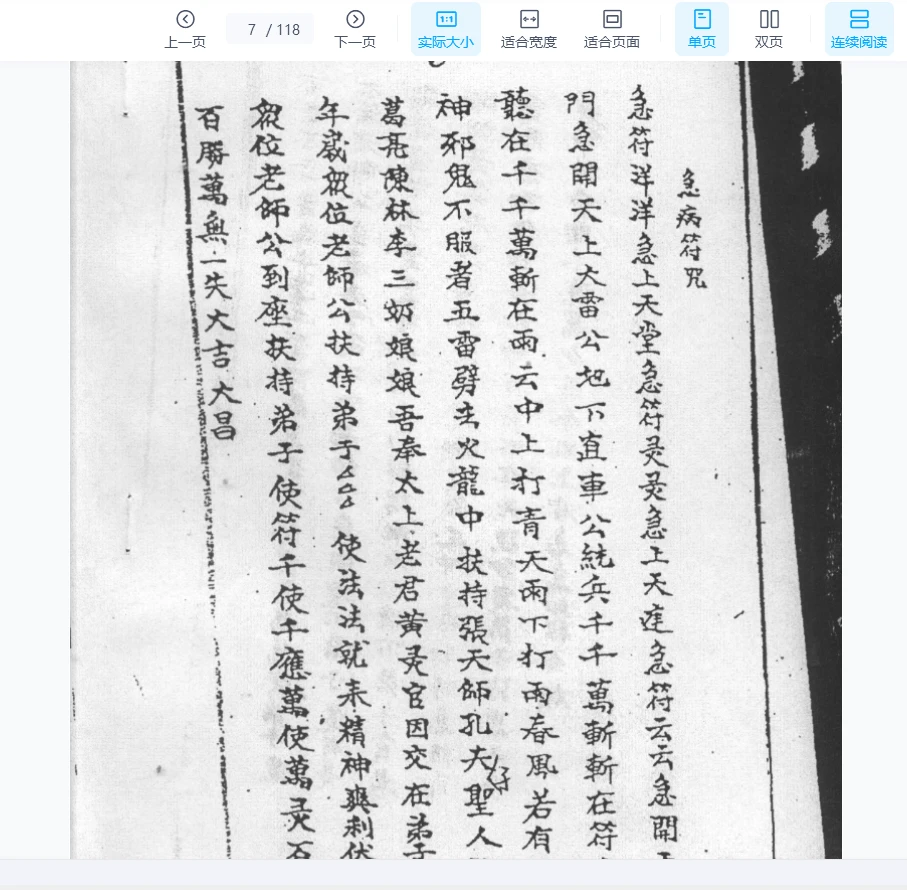 上一页
7 / 118
下一页
实际大小
适合宽度
适合页面
单页
双页
连续阅读
急病符咒
急符洋洋急上天堂急符灵灵急上天達急符云云急開
門急開天上大雷公地下直車公統兵千千萬斬斬在符
聽在千千萬斬在雨云中上打青天雨下打雨春風若有
神邪鬼不服者五雷劈去火龍中扶持張天師孔夫仔聖人
葛亮陳林李三奶娘娘吾奉太上老君黄灵官因交在弟子
年歲眾位老師公扶持弟子厶厶使法法就来精神爽利伏
眾位老師公到座扶持弟子使符千使千應萬使萬灵百
百勝萬無一失大吉大昌